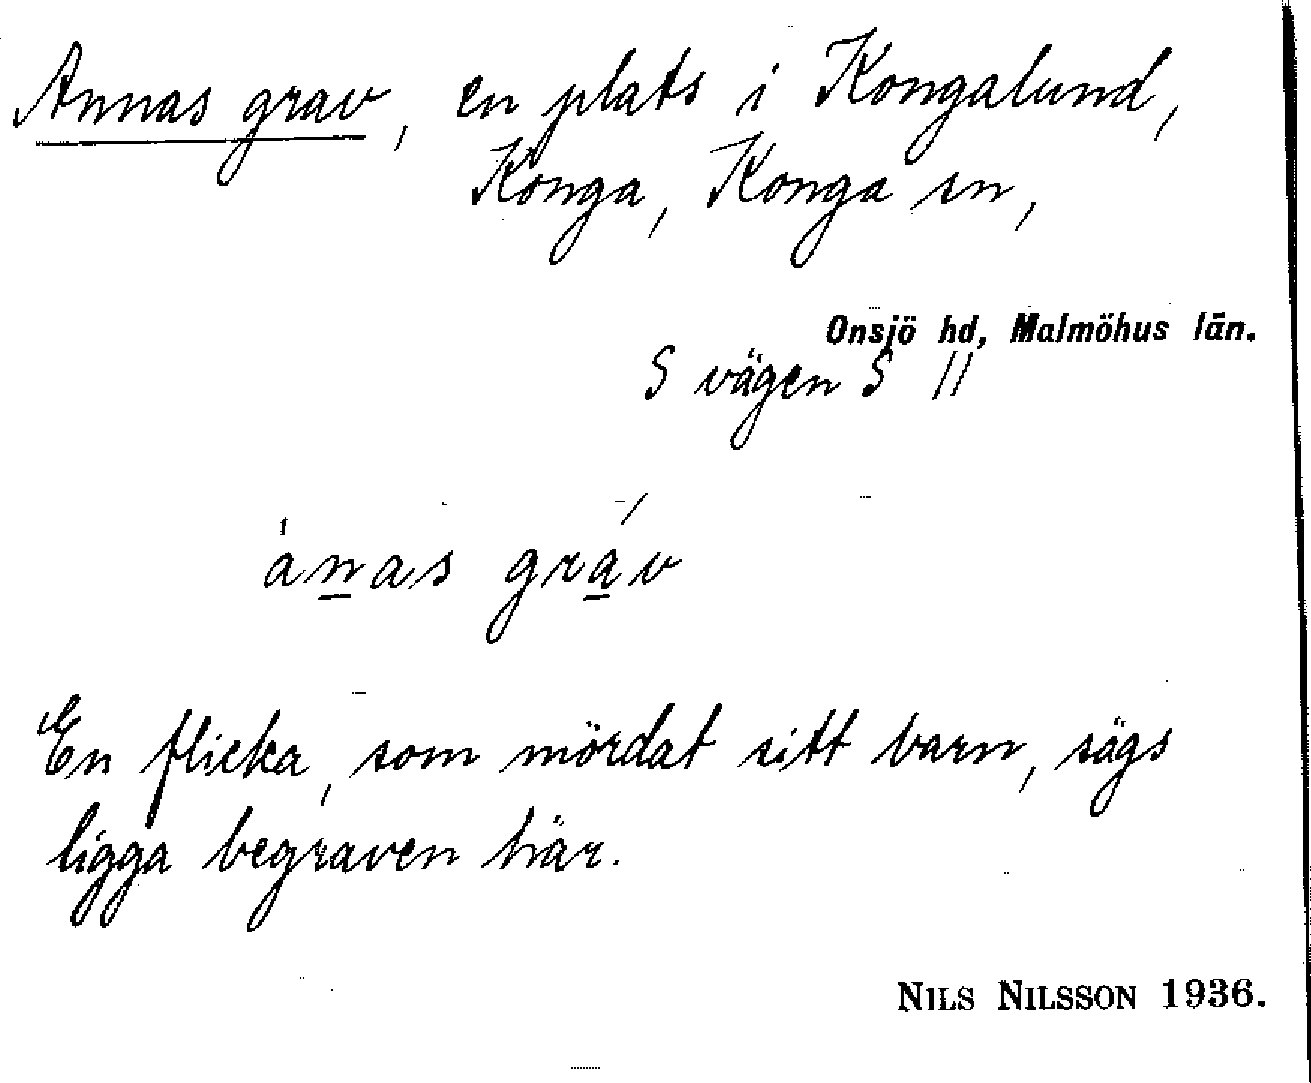 Annas grav, en plats i Kongalund,
Konga, Konga sn,
Onsjö hd, Malmöhus län.
S vägen S 11
ánas gráv
En flicka, som mördat sitt barn, sägs
ligga begraven här.
NILS NILSSON 1936.